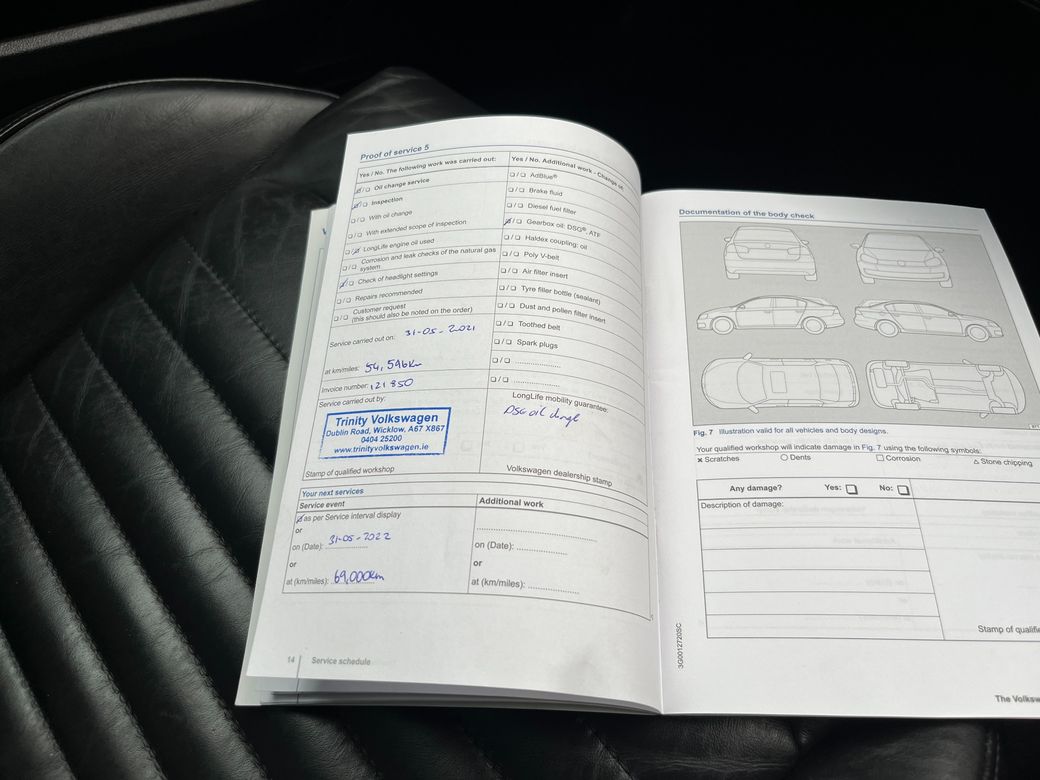 Proof of service 5
Yes / No. The following work was carried out:
☑/❑ Oil change service
☑/❑ Inspection
❑/❑ With oil change
❑/❑ With extended scope of inspection
❑/☑ LongLife engine oil used
❑/❑ Corrosion and leak checks of the natural gas
system
☑/❑ Check of headlight settings
❑/❑ Repairs recommended
❑/❑ Customer request
(this should also be noted on the order)
Service carried out on: 31-05-2021
at km/miles: 54,596km
Invoice number: 121850
Service carried out by:
Trinity Volkswagen
Dublin Road, Wicklow, A67 X867
0404 25200
www.trinityvolkswagen.ie
Stamp of qualified workshop
Yes / No. Additional work - Change of
❑/❑ AdBlue®
❑/❑ Brake fluid
❑/❑ Diesel fuel filter
☑/❑ Gearbox oil: DSG®, ATF
❑/❑ Haldex coupling: oil
❑/❑ Poly V-belt
❑/❑ Air filter insert
❑/❑ Tyre filler bottle (sealant)
❑/❑ Dust and pollen filter insert
❑/❑ Toothed belt
❑/❑ Spark plugs
❑/❑ ....................
❑/❑ ....................
LongLife mobility guarantee:
DSG oil change
Volkswagen dealership stamp
Your next services
Service event
☑ as per Service interval display
or
on (Date): 31-05-2022
or
at (km/miles): 69,000km
Additional work
....................
on (Date): ....................
or
at (km/miles): ....................
14 Service schedule
Documentation of the body check
Fig. 7 Illustration valid for all vehicles and body designs.
Your qualified workshop will indicate damage in Fig. 7 using the following symbols:
× Scratches ○ Dents □ Corrosion △ Stone chipping
Any damage? Yes: ❑ No: ❑
Description of damage:
Stamp of qualifi
3G0012720SC
The Volksw